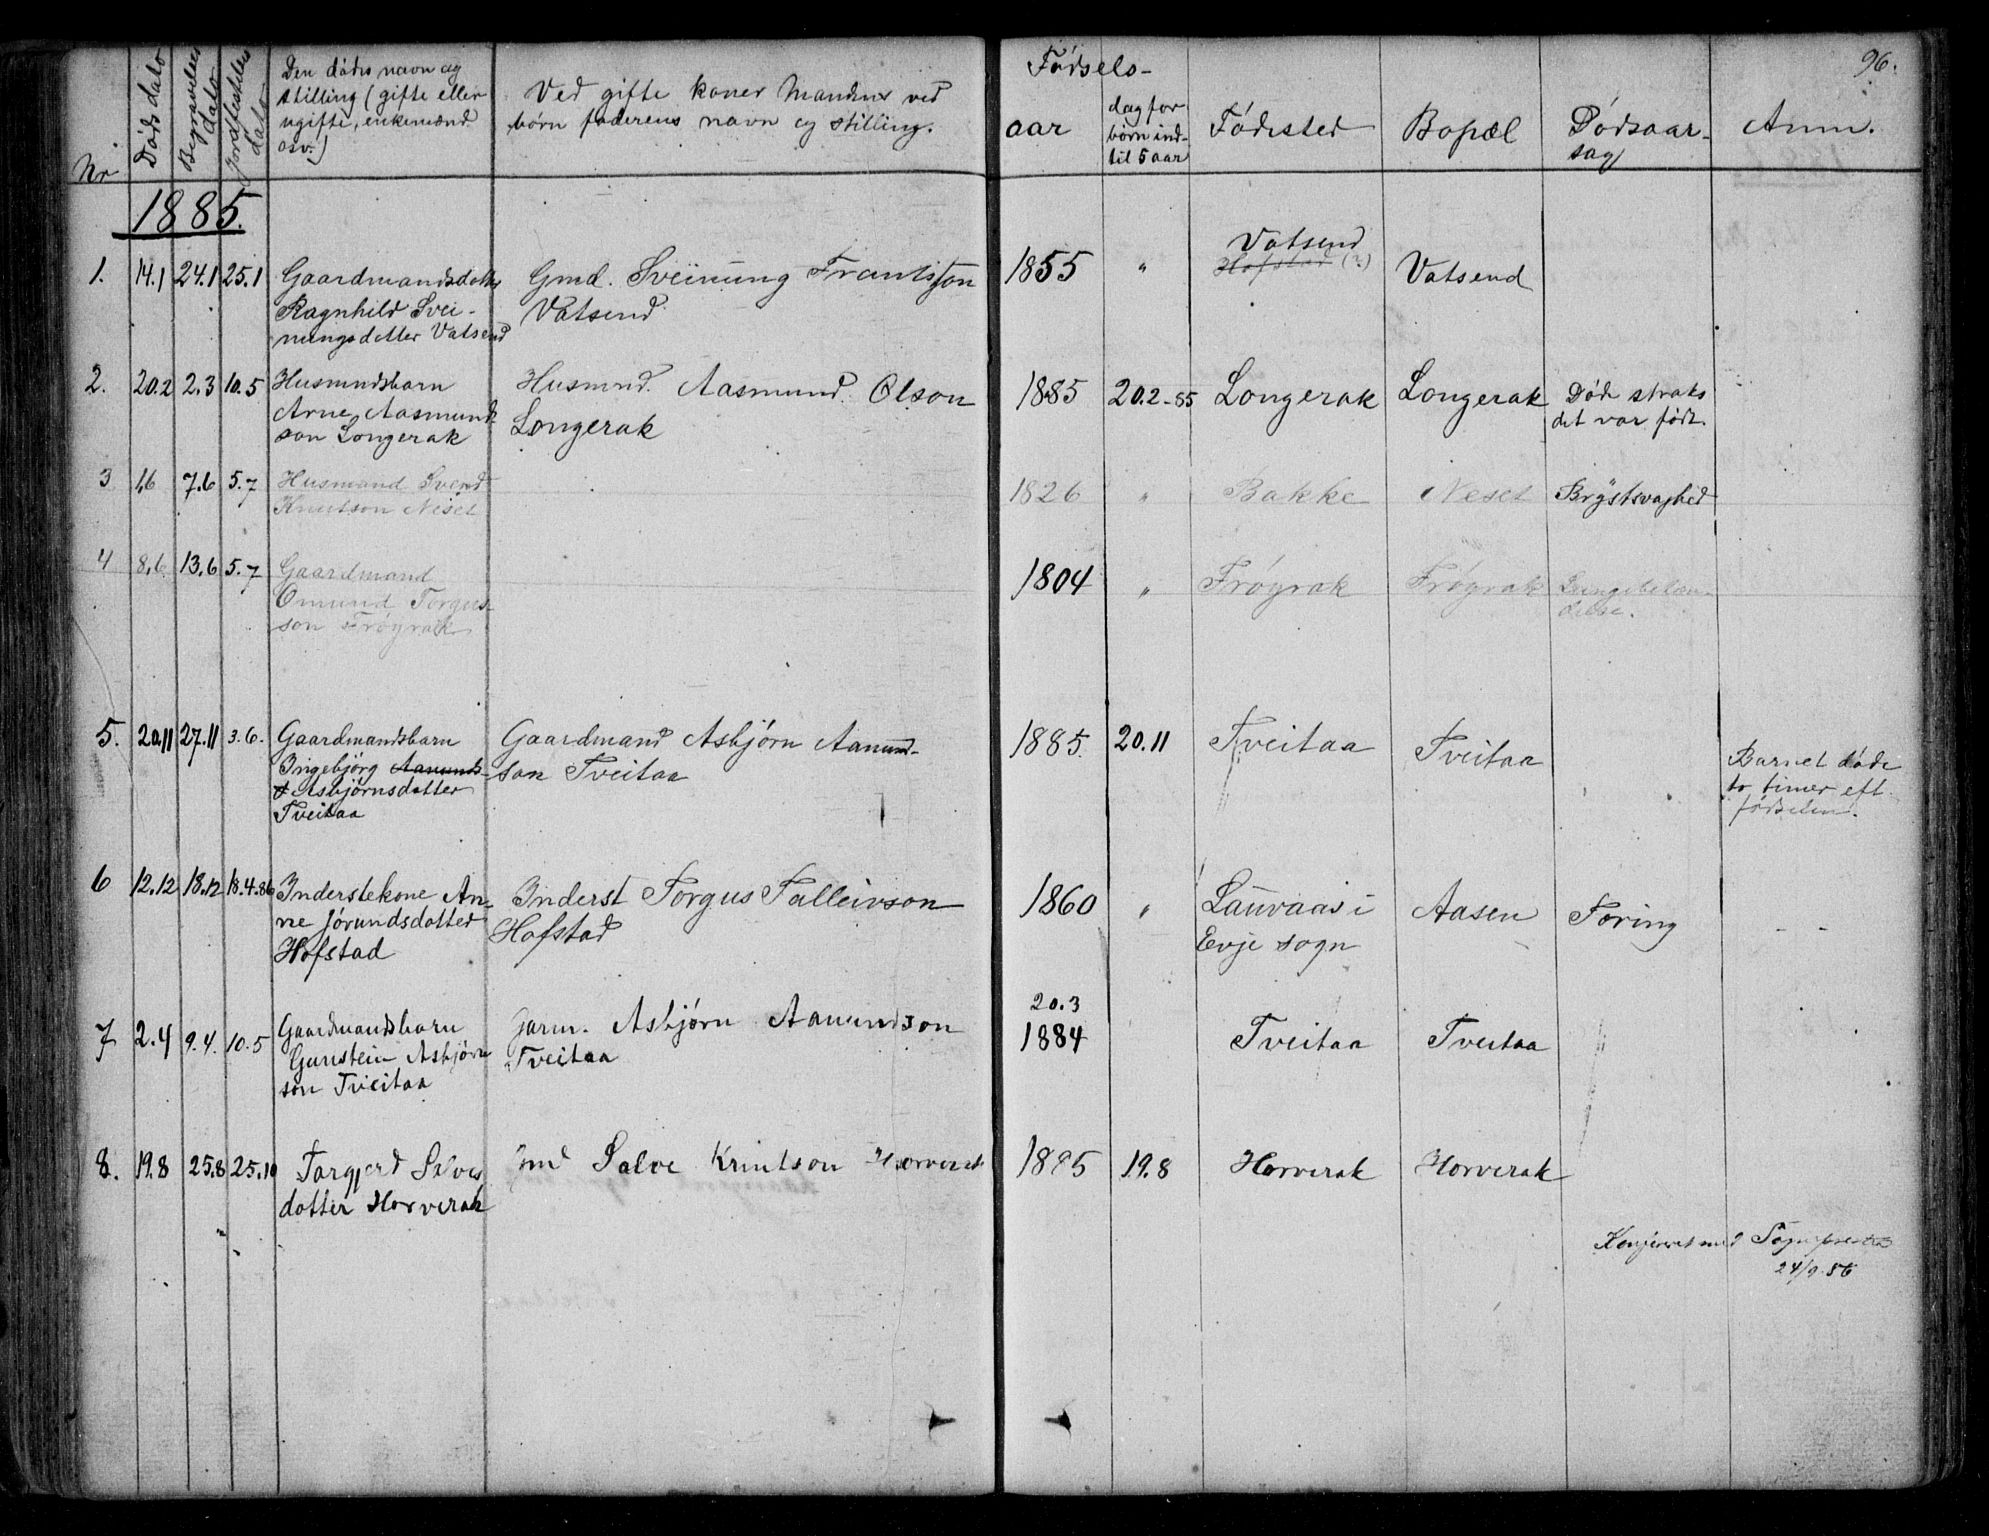 96.
Nr
Døds dato
Begravelses dato
Jordfestelses dato
Den dødes navn og
stilling (gifte eller
ugifte, enkemænd
osv.)
Ved gifte koner Mandens ved
børn faderens navn og stilling.
Fødsels-
aar
dag for
børn ind-
til 5 aar
Fødested
Bopæl
Dødsaar-
sag
Anm.
1885.
1. 14.1 24.1 25.1 Gaardmandsdotter
Ragnhild Svei-
nungsdotter Vatsend
Gmd. Sveinung Frantsson
Vatsend
1855 " Vatsend
Hofstad (?)
Vatsend
2. 20.2 2.3 10.5 Husmndsbarn
Arne Aasmund-
son Longerak
Husmnd. Aasmund Olson
Longerak
1885 20.2-85 Longerak Longerak Døde straks
det var født.
3 1.6 7.6 5.7 Husmand Svend
Knutson Neset
1826 " Bakke Neset Brystsvaghed
4 8.6 13.6 5.7 Gaardmand
Omund Torgus-
son Frøyrak
1804 " Frøyrak Frøyrak Lungebetæn-
delse.
5. 20.11 27.11 3.6. Gaardmandsbarn
Ingebjørg Aanunds-
Asbjørnsdotter
Tveitaa
Gaardmand Asbjørn Aanund-
son Tveitaa
1885. 20.11 Tveitaa Tveitaa
Barnet døde
to timer eft.
fødselen.
6 12.12 18.12 18.4.86 Inderstekone An-
ne Jørundsdotter
Hofstad
Inderst Torgus Talleivson
Hofstad
1860 " Lauvaas i
Evje sogn
Aasen Tæring - -
7 2.4 9.4. 10.5 Gaardmandsbarn
Gunstein Asbjørn
son Tveitaa
Garm. Asbjørn Aanundson
Tveitaa
20.3
1884 Tveitaa Tveitaa
8. 19.8 25.8 25.10 Torgjerd Salves
dotter Horverak
Gmd Salve Knutson Horverak
1885 19.8 Horverak Horverak
Konfereret med Sognepresten
24/9.86